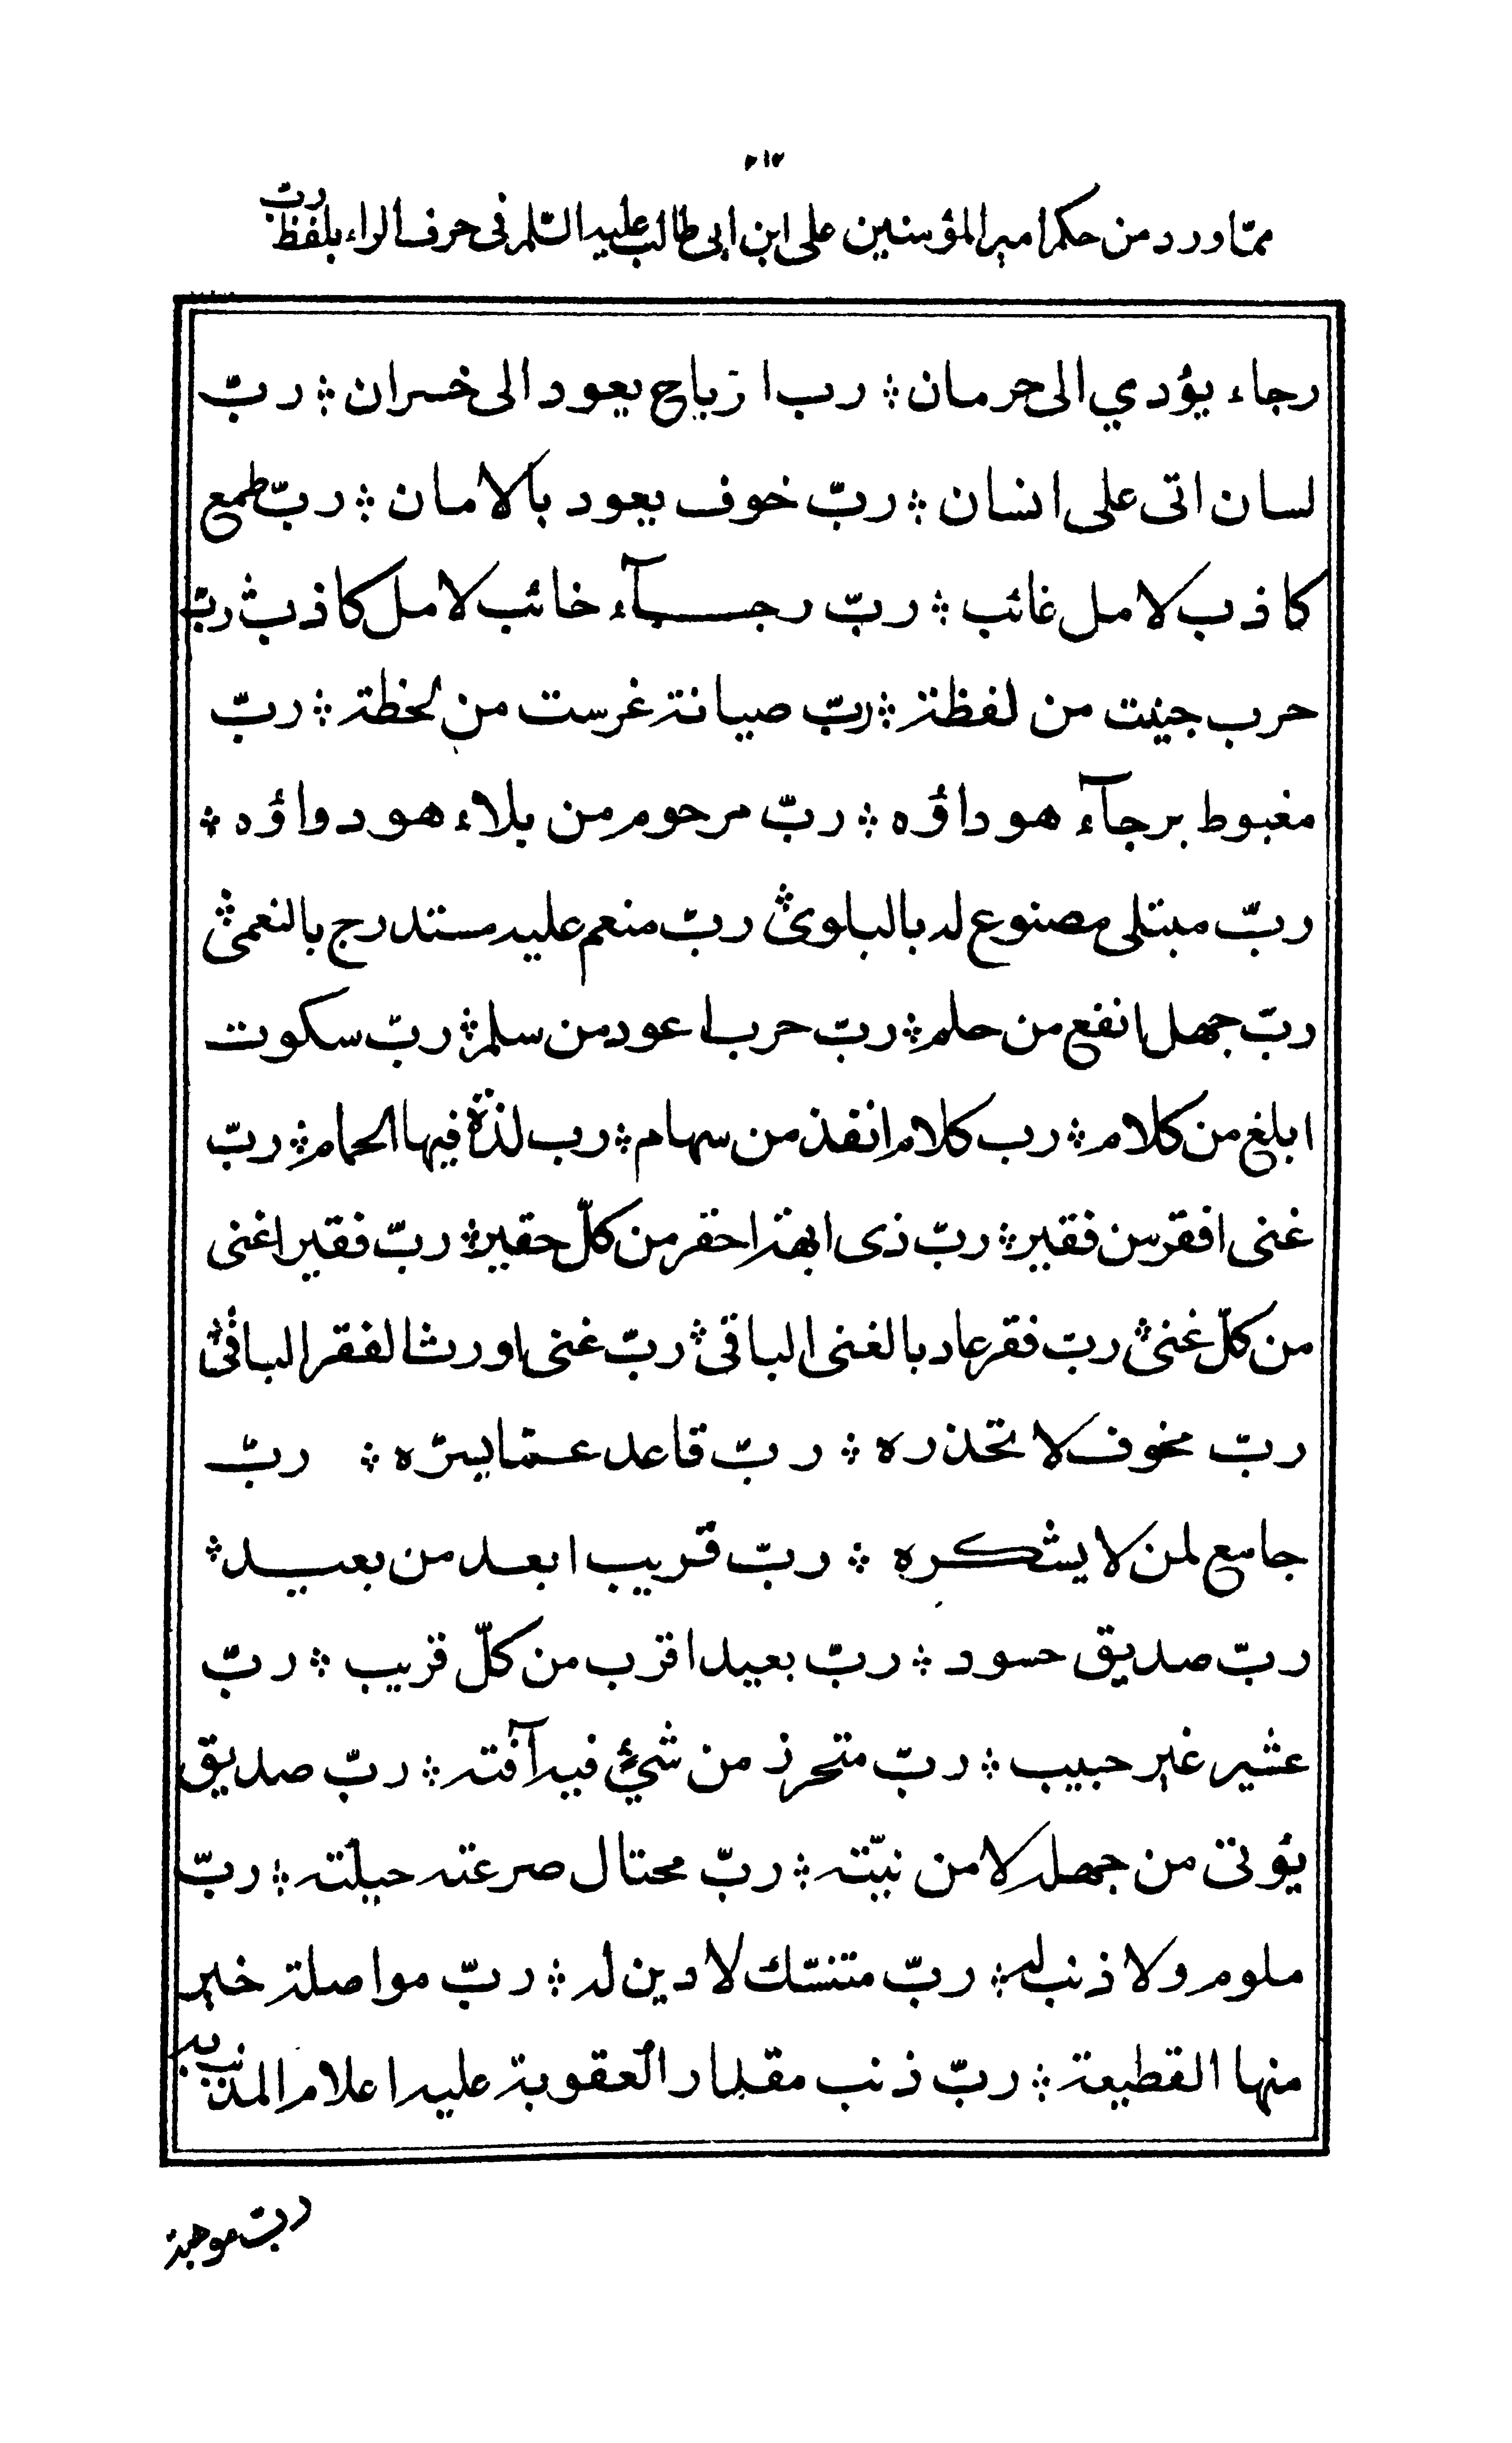 ٢١٣
ممّا ورد من حكم امير المؤمنين على ابن ابى طالب عليه السّلم فى حرف الراء بلفظ ربّ
رجاء يؤدي الى حرمان ؞ رب ارباح يعود الى خسران ؞ ربّ
لسان اتى على انسان ؞ ربّ خوف يعود بالامان ؞ ربّ طمع
كاذب لامل غائب ؞ ربّ رجآء خائب لامل كاذب ؞ ربّ
حرب جنيت من لفظة ؞ ربّ صيانة غرست من لحظة ؞ ربّ
مغبوط برجآء هو داؤه ؞ ربّ مرحوم من بلاء هو دواؤه ؞
ربّ مبتلى مصنوع له بالبلوى ؞ ربّ منعم عليه مستدرج بالنعمى ؞
ربّ جهل انفع من حلم ؞ ربّ حرب اعود من سلم ؞ ربّ سكوت
ابلغ من كلام ؞ رب كلام انفذ من سهام ؞ رب لذّة فيها الحمام ؞ ربّ
غنى افقر من فقير ؞ ربّ ذى ابهة احقر من كلّ حقير ؞ ربّ فقير اغنى
من كلّ غنى ؞ ربّ فقر عاد بالغنى الباقى ؞ ربّ غنى اورث الفقر الباقى ؞
ربّ مخوف لا تحذره ؞ ربّ قاعد عمّا يسرّه ؞ ربّ
جامع لمن لا يشكره ؞ ربّ قريب ابعد من بعيد ؞
ربّ صديق حسود ؞ ربّ بعيد اقرب من كلّ قريب ؞ ربّ
عشير غير حبيب ؞ ربّ متحرز من شئ فيه آفته ؞ ربّ صديق
يؤتى من جهله لا من نيّته ؞ ربّ محتال صرعته حيلته ؞ ربّ
ملوم ولا ذنب له ؞ ربّ متنسّك لا دين له ؞ ربّ مواصلة خير
منها القطيعة ؞ ربّ ذنب مقدار العقوبة عليه اعلام المذنب به
ربّ موهبة